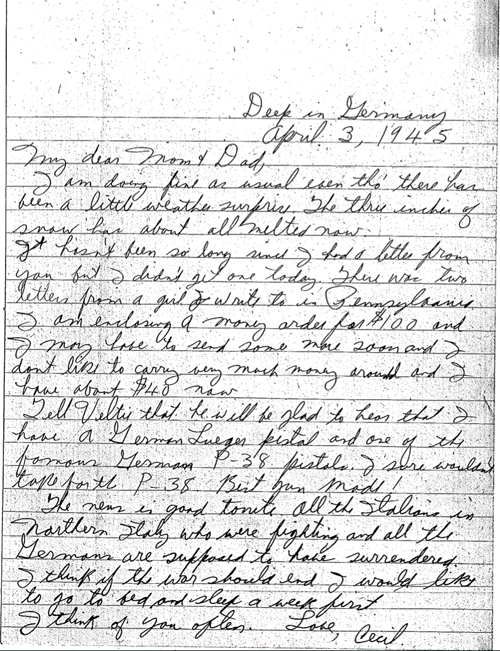 Deep in Germany
April 3, 1945
My dear Mom & Dad,
I am doing fine as usual even tho' there has
been a little weather surprise. The three inches of
snow has about all melted now.
It hasn't been so long since I had a letter from
you but I didn't get one today. There was two
letters from a girl I write to in Pennsylvania
I am enclosing a money order for $100 and
I may have to send some more soon and I
don't like to carry very much money around and I
have about $40 now
Tell Veltie that he will be glad to hear that I
have a German Lueger pistol and one of the
famous German P-38 pistols. I sure wouldn't
take for th P-38 Best gun made!
The news is good tonite. All the Italians in
Northern Italy who were fighting and all the
Germans are supposed to have surrendered.
I think if the war should end I would like
to go to bed and sleep a week first
I think of you often. Love, Cecil.